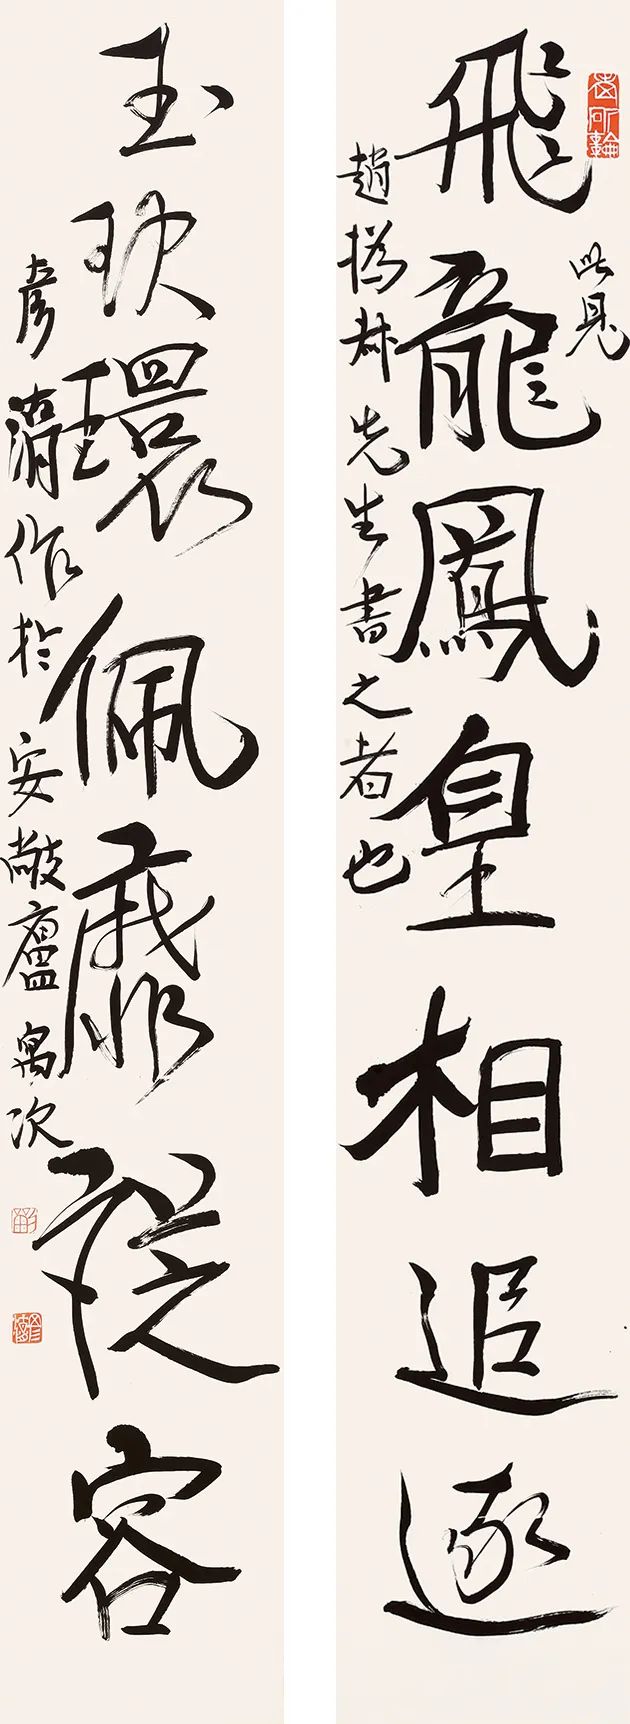 飛龍鳳皇相追逐
此見
趙撝叔先生書之者也
玉玦環佩靡從容
彥 作於安 廬寓次